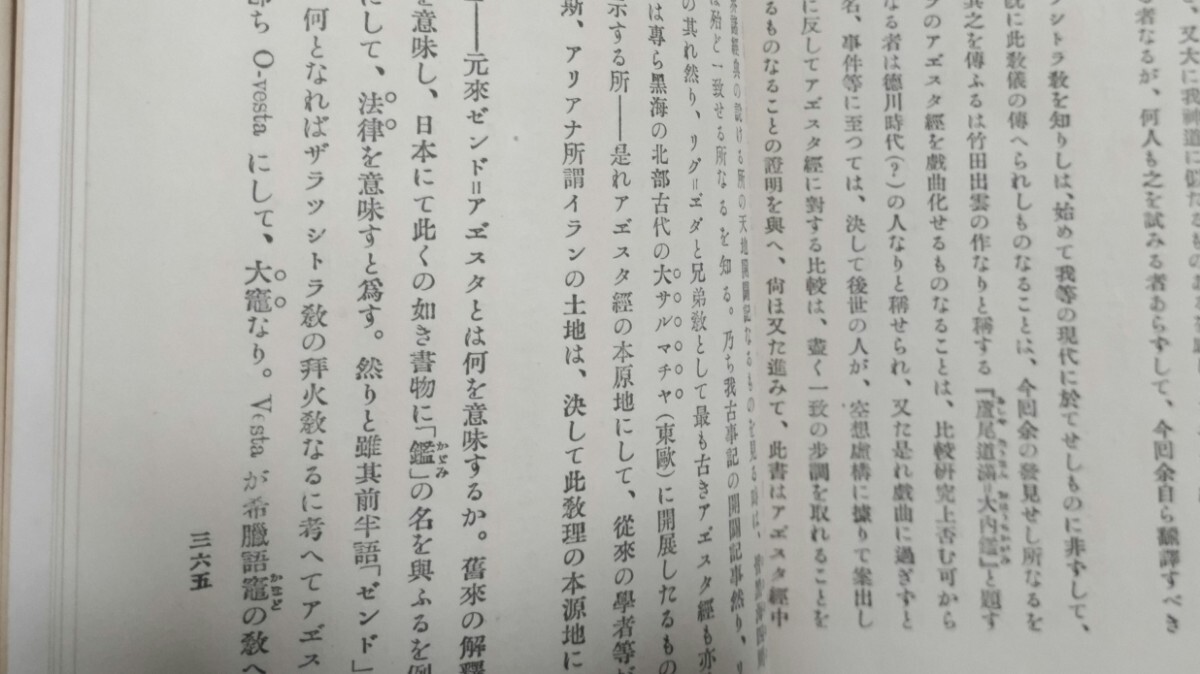 又大に我神道に
者なるが、何人も之を試みる者あらずして、今回余自ら翻譯すべき
シトラ敎を知りしは、始めて我等の現代に於てせしものに非ずして、
既に此敎儀の傳へられしものなることは、今回余の發見せし所なるを
其之を傳ふるは竹田出雲の作なりと稱する『蘆屋道滿=大內鑑』と題す
のアヹスタ經を戲曲化せるものなることは、比較硏究上否む可から
なる者は德川時代(?)の人なりと稱せられ、又た是れ戲曲に過ぎずと
名、事件等に至つては、決して後世の人が、空想虛構に據りて案出し
に反してアヹスタ經に對する比較は、盡く一致の步調を取れることを
るものなることの證明を與へ、尙ほ又た進みて、此書はアヹスタ經中
經典の說ける所の天地開闢記なるものを見る
殆ど一致せる所なるを知る。乃ち我古事記の開闢記事然り、
の其れ然り、リグ=ヹダと兄弟敎として最も古きアヹスタ經も亦
は專ら黑海の北部古代の大サルマチヤ(東歐)に開展したるもの
示する所——是れアヹスタ經の本原地にして、從來の學者等が
斯、アリアナ所謂イランの土地は、決して此敎理の本源地に
——元來ゼンド=アヹスタとは何を意味するか。舊來の解釋
を意味し、日本にて此くの如き書物に「鑑」の名を與ふるを例
にして、法律を意味すと爲す。然りと雖其前半語「ゼンド」
何となればザラツシトラ敎の拜火敎なるに考へてアヹス
卽ち O-vesta にして、大竈なり。Vesta が希臘語竈の敎へ
三六五